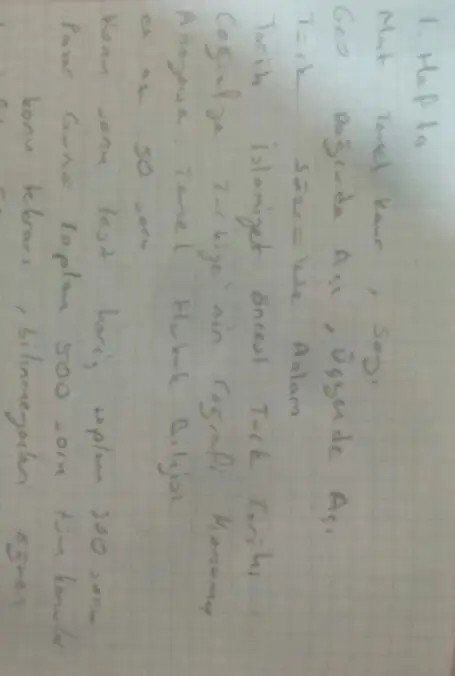 1. Hafta
Mat Temel Kav, Sayı
Geo Doğruda Açı, Üçgende Açı
Türk Sözcükte Anlam
Tarih İslamiyet Öncesi Türk Tarihi
Coğrafya Türkiye'nin Coğrafi Konumu
Anayasa Temel Hukuk Bilgisi
en az 50 soru
Konu soru test hariç toplam 200 soru
Pazar Günü toplam 500 soru tüm konular
konu tekrarı, bilinmeyenleri